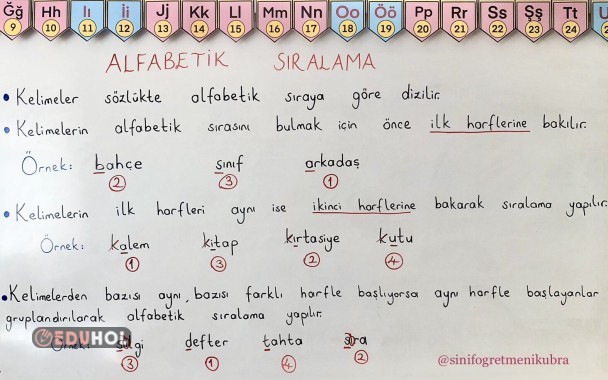 Ğğ Hh Iı İi Jj Kk Ll Mm Nn Oo Öö Pp Rr Ss Şş Tt U
9 10 11 12 13 14 15 16 17 18 19 20 21 22 23 24 2
ALFABETİK SIRALAMA
• Kelimeler sözlükte alfabetik sıraya göre dizilir.
• Kelimelerin alfabetik sırasını bulmak için önce ilk harflerine bakılır.
Örnek: bahçe sınıf arkadaş
2 3 1
• Kelimelerin ilk harfleri aynı ise ikinci harflerine bakarak sıralama yapılır.
Örnek: kalem kitap kırtasiye kutu
1 3 2 4
• Kelimelerden bazısı aynı, bazısı farklı harfle başlıyorsa aynı harfle başlayanlar
gruplandırılarak alfabetik sıralama yapılır.
EDUHOL
Örnek: defter tahta sıra
3 1 4 2
@sinifogretmenikubra